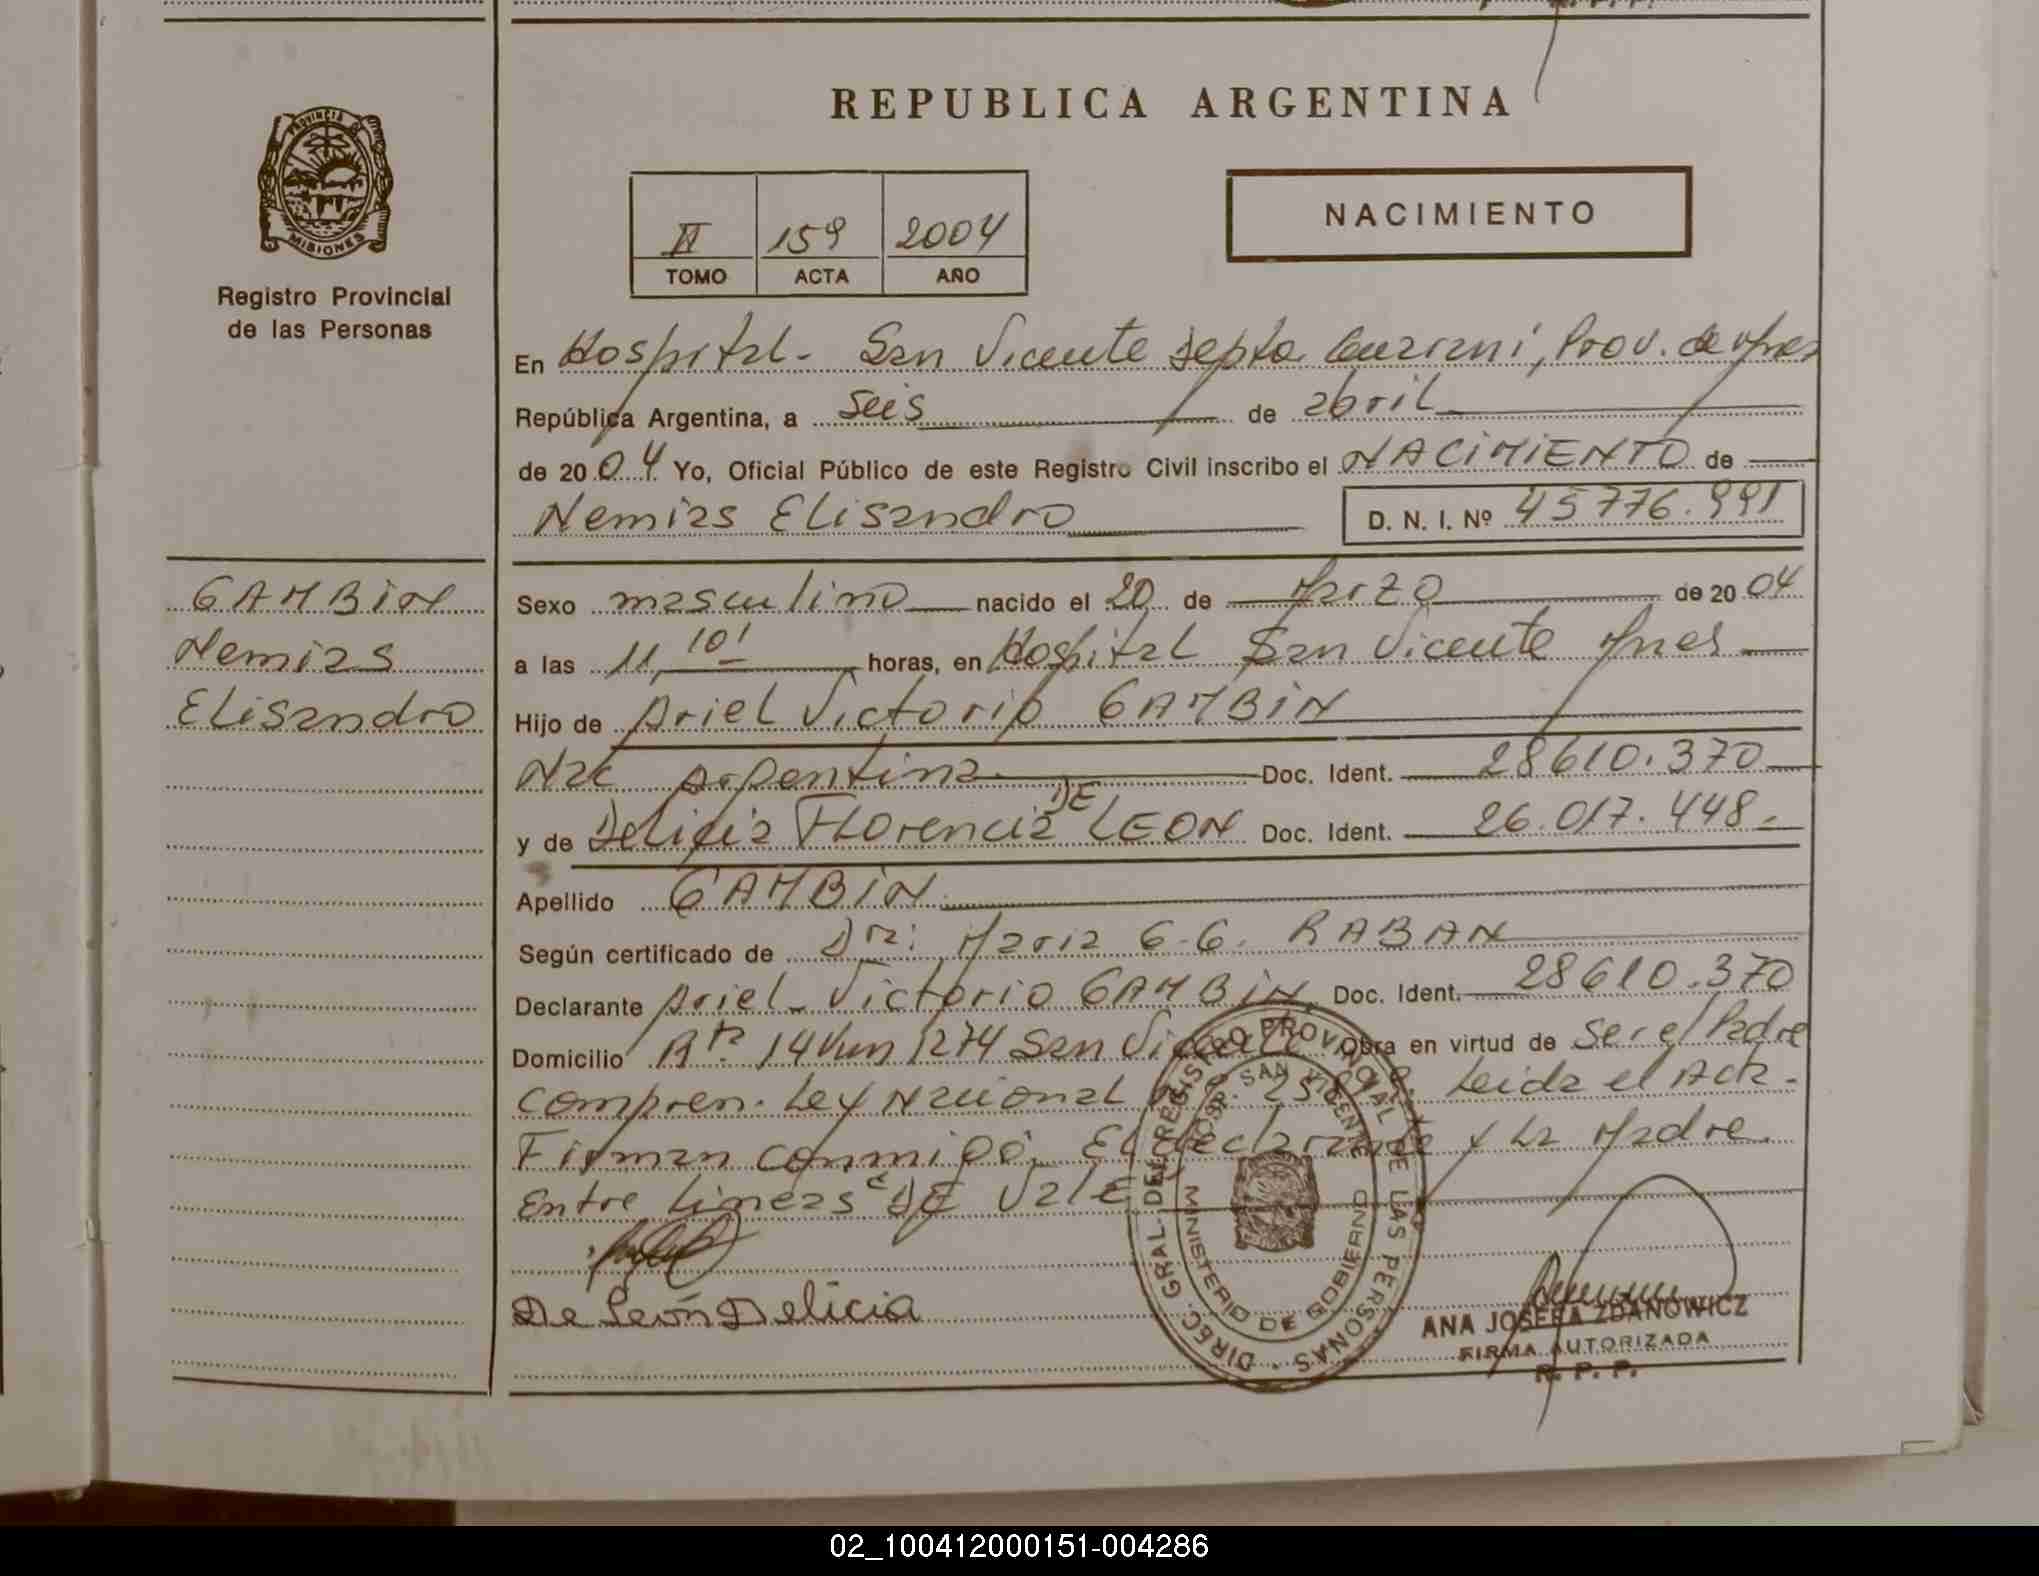 REPUBLICA ARGENTINA
PROVINCIA DE
MISIONES
Registro Provincial
de las Personas
II 159 2004
TOMO ACTA AÑO
NACIMIENTO
En Hospital - San Vicente Depto. Guarani, Prov. de Mnes
República Argentina, a seis de abril
de 2004 Yo, Oficial Público de este Registro Civil inscribo el NACIMIENTO de
Nemias Elisandro D. N. I. Nº 45776.991
GAMBIN
Nemias
Elisandro
Sexo masculino nacido el 20 de Marzo de 2004
a las 11,10' horas, en Hospital San Vicente Mnes
Hijo de Ariel Victorio GAMBIN
Nac Argentina. Doc. Ident. 28610.370
y de Delicia Florencia DE LEON Doc. Ident. 26.017.448.
Apellido GAMBIN
Según certificado de Dra: Maria G. G. RABAN
Declarante Ariel Victorio GAMBIN Doc. Ident. 28610.370
Domicilio Rta. 14 Km 1274 San Vicente Obra en virtud de ser el Padre
Compren. Ley Nacional Leida el Acta.
Firman conmigo. El declarante y la Madre.
Entre Lineas "DE Vale
De León Delicia
DIREC. GRAL. DEL REGISTRO PROVINCIAL DE LAS PERSONAS
SAN VICENTE
MINISTERIO DE GOBIERNO
ANA JOSEFA ZDANOWICZ
FIRMA AUTORIZADA
R. P. P.
02_100412000151-004286